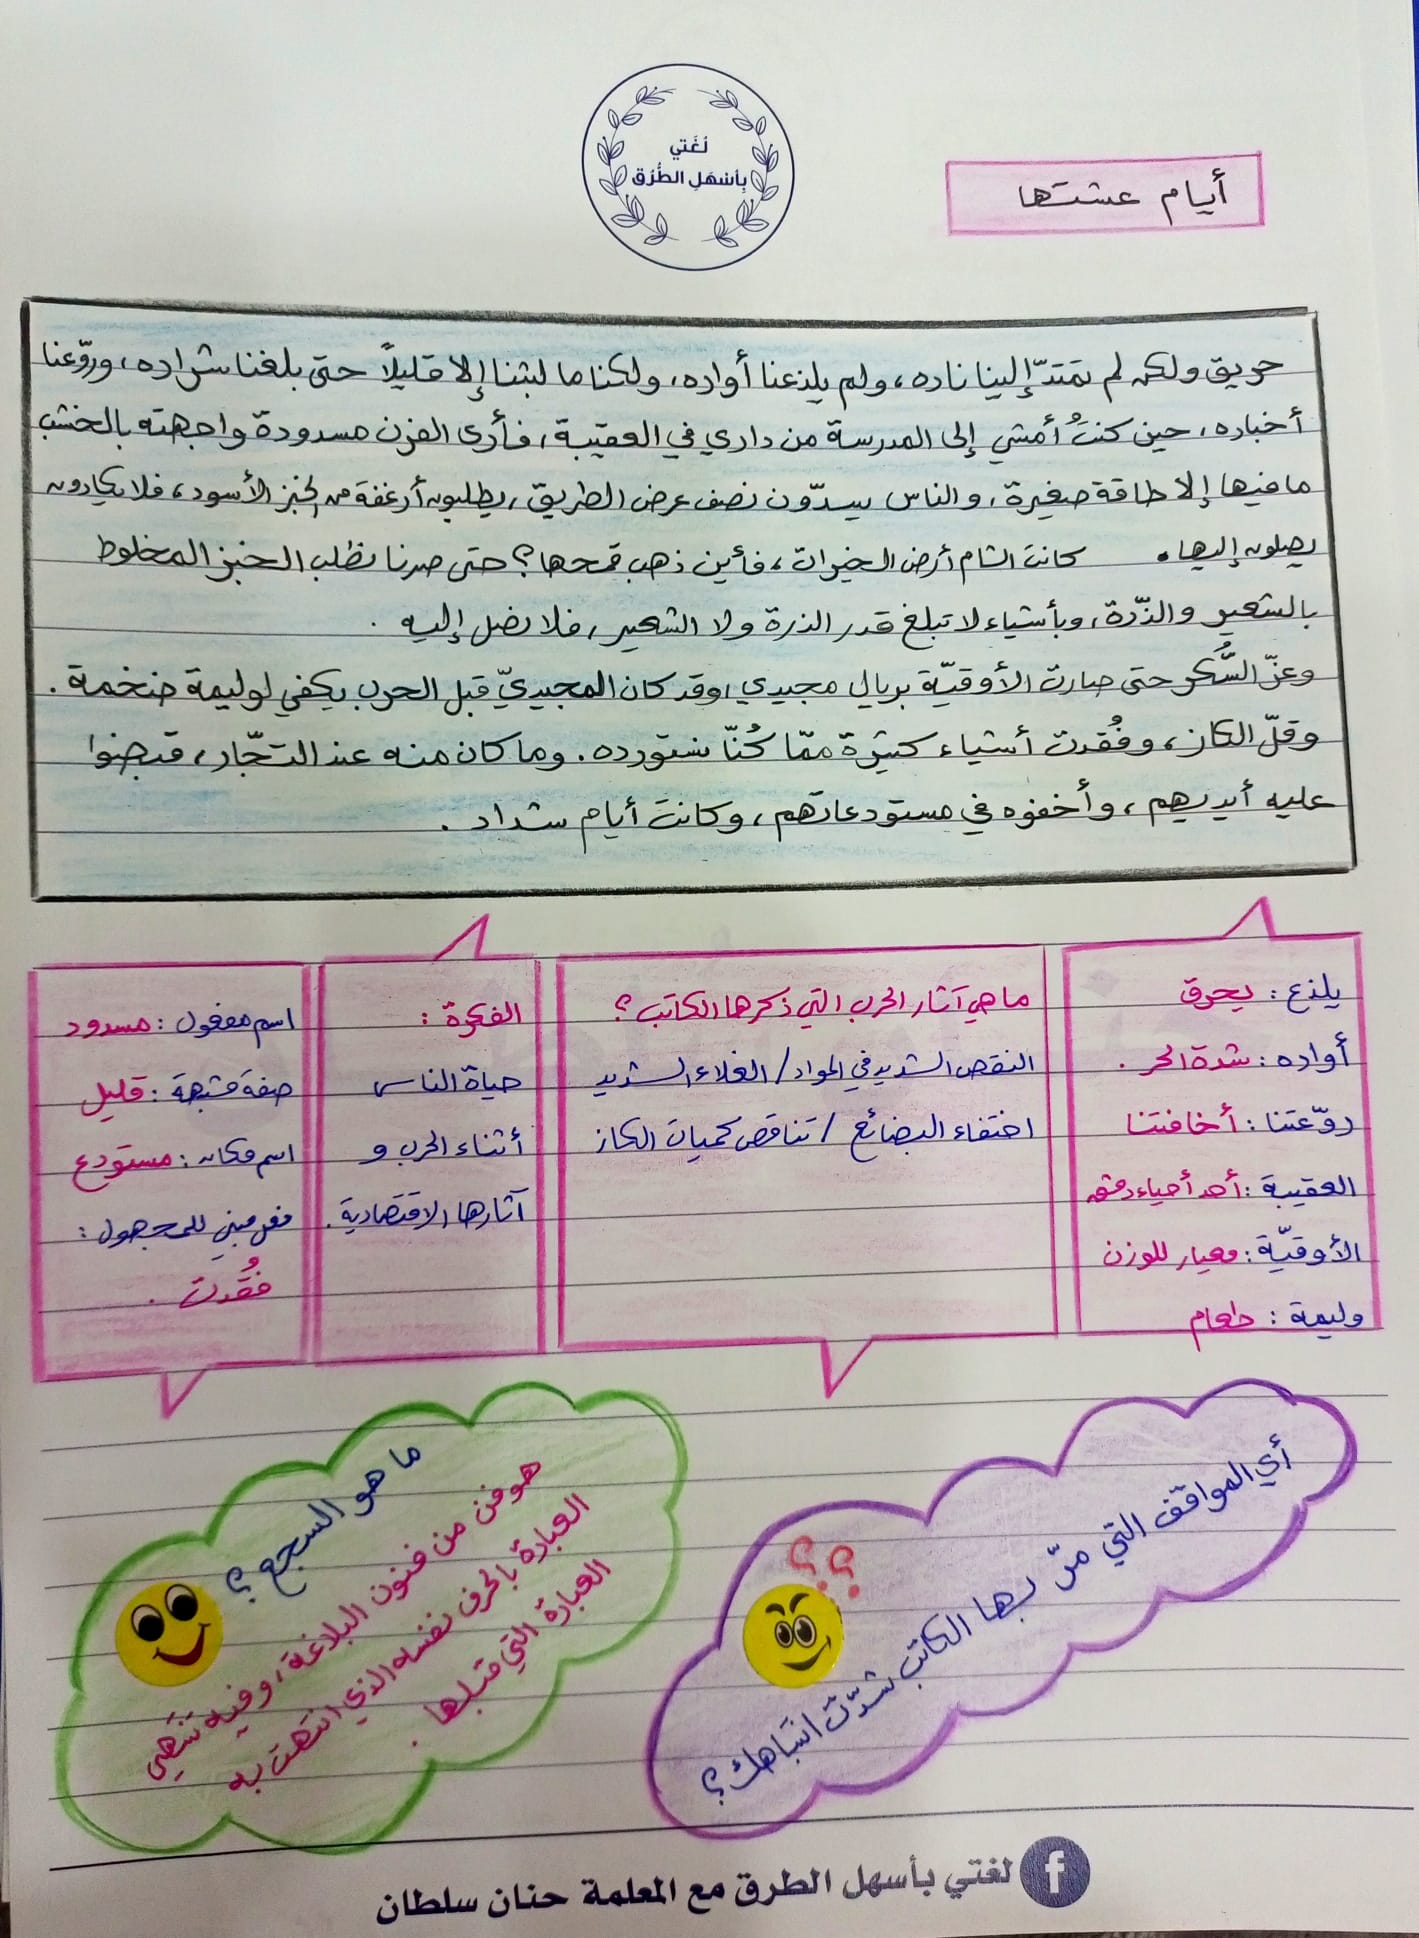 لُغَتي
بِأَسْهَلِ الطُّرُق
أيام عشتها
حريق ولكن لم تمتدّ إلينا ناره، ولم يلذعنا أواره، ولكنا ما لبثنا إلا قليلاً حتى بلغنا شراره، وروّعنا
أخباره، حين كنتُ أمشي إلى المدرسة من داري في العقيبة، فأرى الفرن مسدودة واجهته بالخشب
ما فيها إلا طاقة صغيرة، والناس يسدّون نصف عرض الطريق، يطلبون أرغفة من الخبز الأسود، فلا يكادون
يصلون إليها. كانت الشام أرض الخيرات، فأين ذهب قمحها؟ حتى صرنا نطلب الخبز المخلوط
بالشعير والذّرة، وبأشياء لا تبلغ قدر الذرة ولا الشعير، فلا نصل إليه.
وعزّ السُّكر حتى صارت الأوقيّة بريال مجيدي، وقد كان المجيديّ قبل الحرب يكفي لوليمة ضخمة.
وقلّ الكاز، وفُقدت أشياء كثيرة ممّا كُنّا نستورده. وما كان منه عند التجّار، قبضوا
عليه أيديهم، وأخفوه في مستودعاتهم، وكانت أيام شداد.
يلذع: يحرق
أواره: شدة الحر.
روّعتنا: أخافتنا
العقيبة: أحد أحياء دمشق
الأوقيّة: معيار للوزن
وليمة: طعام
ما هي آثار الحرب التي ذكرها الكاتب؟
النقص الشديد في المواد/ الغلاء الشديد
اختفاء البضائع / تناقص كميات الكاز
الفكرة:
حياة الناس
أثناء الحرب و
آثارها الاقتصادية.
اسم مفعول: مسدود
صفة مشبهة: قليل
اسم مكان: مستودع
فعل مبني للمجهول:
فُقدت.
أي المواقف التي مرّ بها الكاتب شدّت انتباهك؟
؟؟
ما هو السجع؟
هو فن من فنون البلاغة، وفيه تنتهي
العبارة بالحرف نفسه الذي انتهت به
العبارة التي قبلها.
لغتي بأسهل الطرق مع المعلمة حنان سلطان